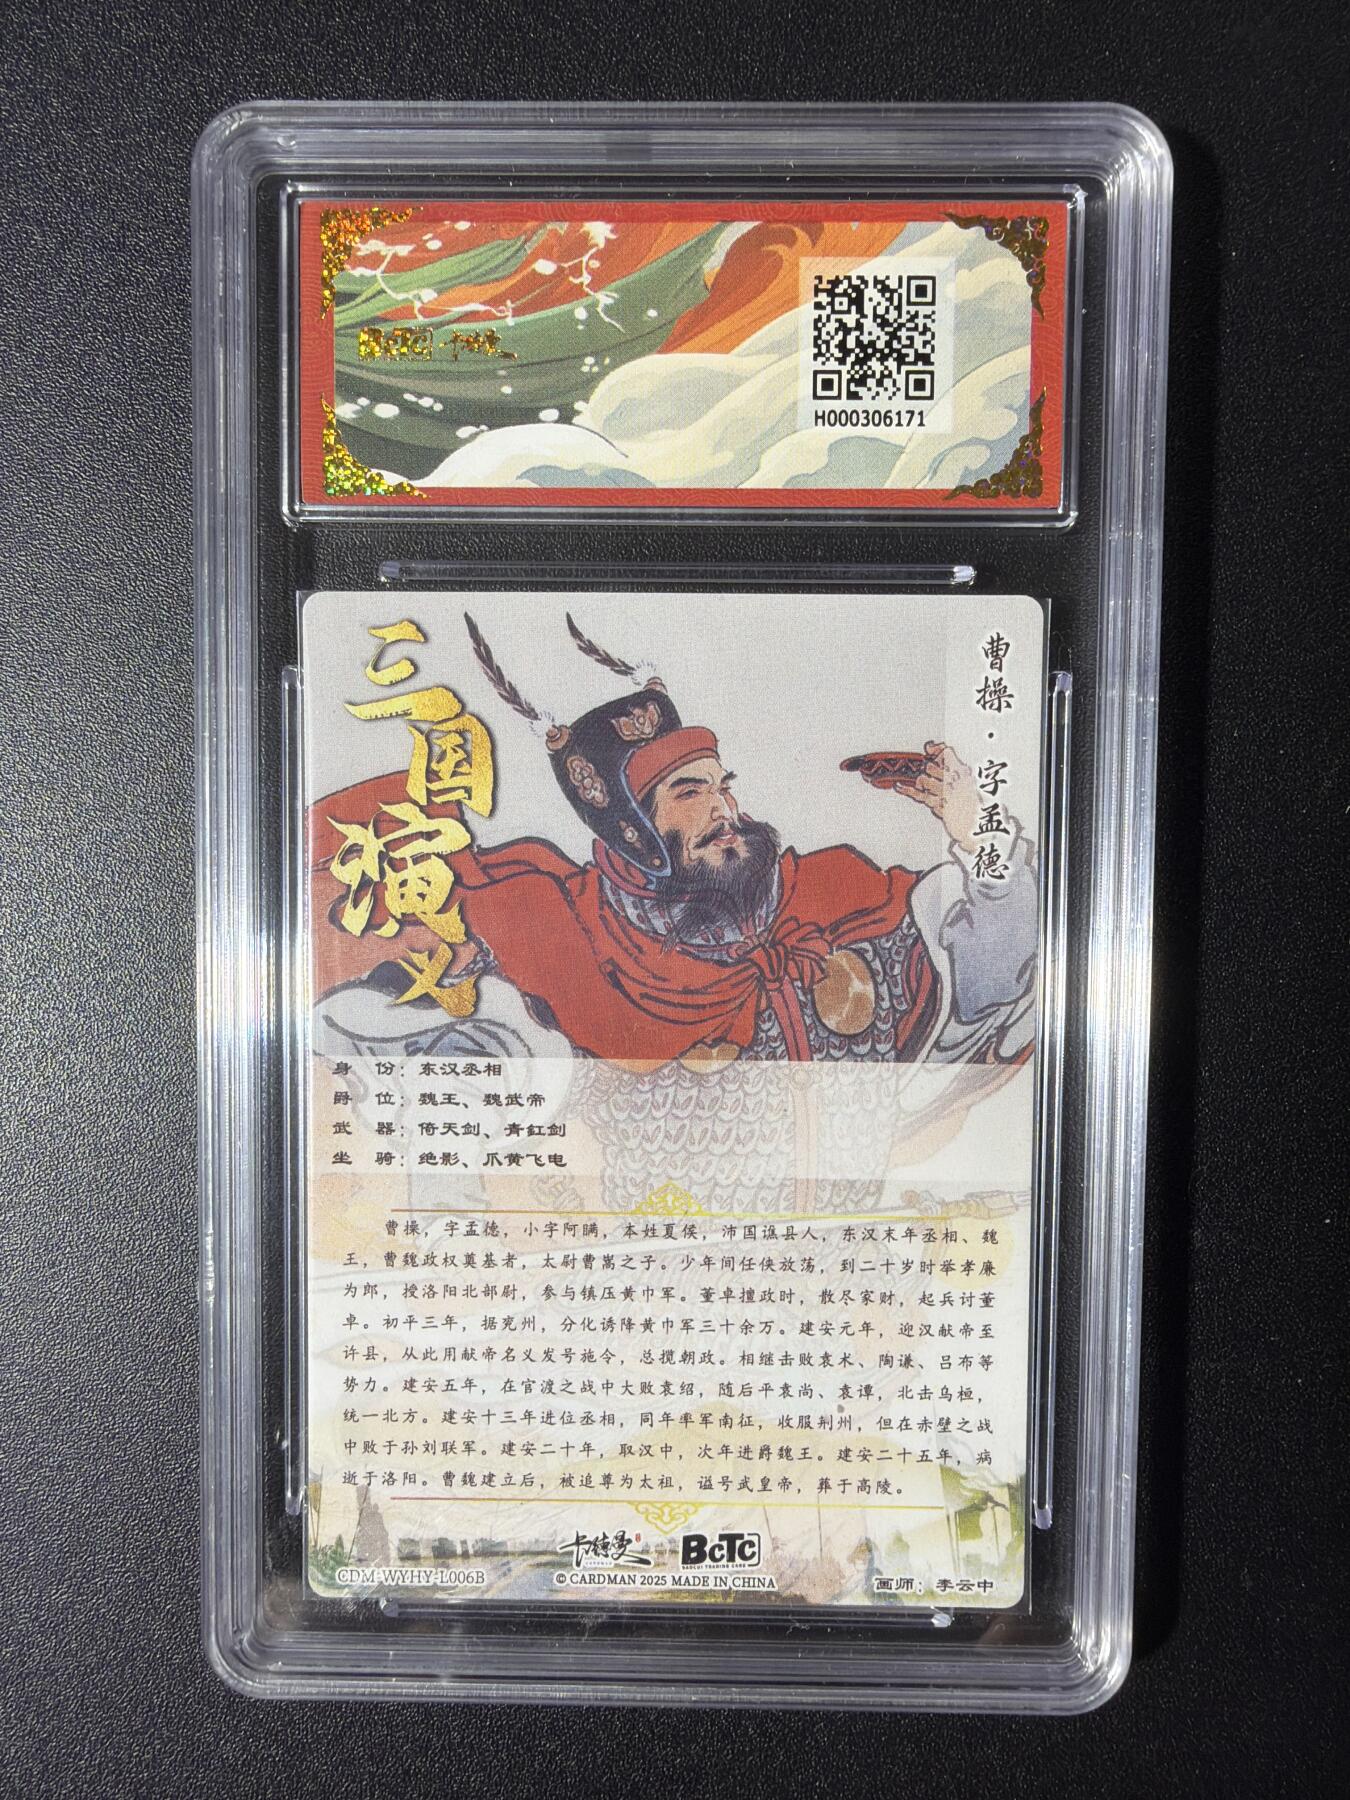 BCTC 卡德曼
H000306171
三国演义
曹操·字孟德
身 份：东汉丞相
爵 位：魏王、魏武帝
武 器：倚天剑、青釭剑
坐 骑：绝影、爪黄飞电
曹操，字孟德，小字阿瞒，本姓夏侯，沛国谯县人，东汉末年丞相、魏
王，曹魏政权奠基者，太尉曹嵩之子。少年间任侠放荡，到二十岁时举孝廉
为郎，授洛阳北部尉，参与镇压黄巾军。董卓擅政时，散尽家财，起兵讨董
卓。初平三年，据兖州，分化诱降黄巾军三十余万。建安元年，迎汉献帝至
许县，从此用献帝名义发号施令，总揽朝政。相继击败袁术、陶谦、吕布等
势力。建安五年，在官渡之战中大败袁绍，随后平袁尚、袁谭，北击乌桓，
统一北方。建安十三年进位丞相，同年率军南征，收服荆州，但在赤壁之战
中败于孙刘联军。建安二十年，取汉中，次年进爵魏王。建安二十五年，病
逝于洛阳。曹魏建立后，被追尊为太祖，谥号武皇帝，葬于高陵。
卡德曼 BCTC
CDM-WYHY-L006B
© CARDMAN 2025 MADE IN CHINA
画师：李云中